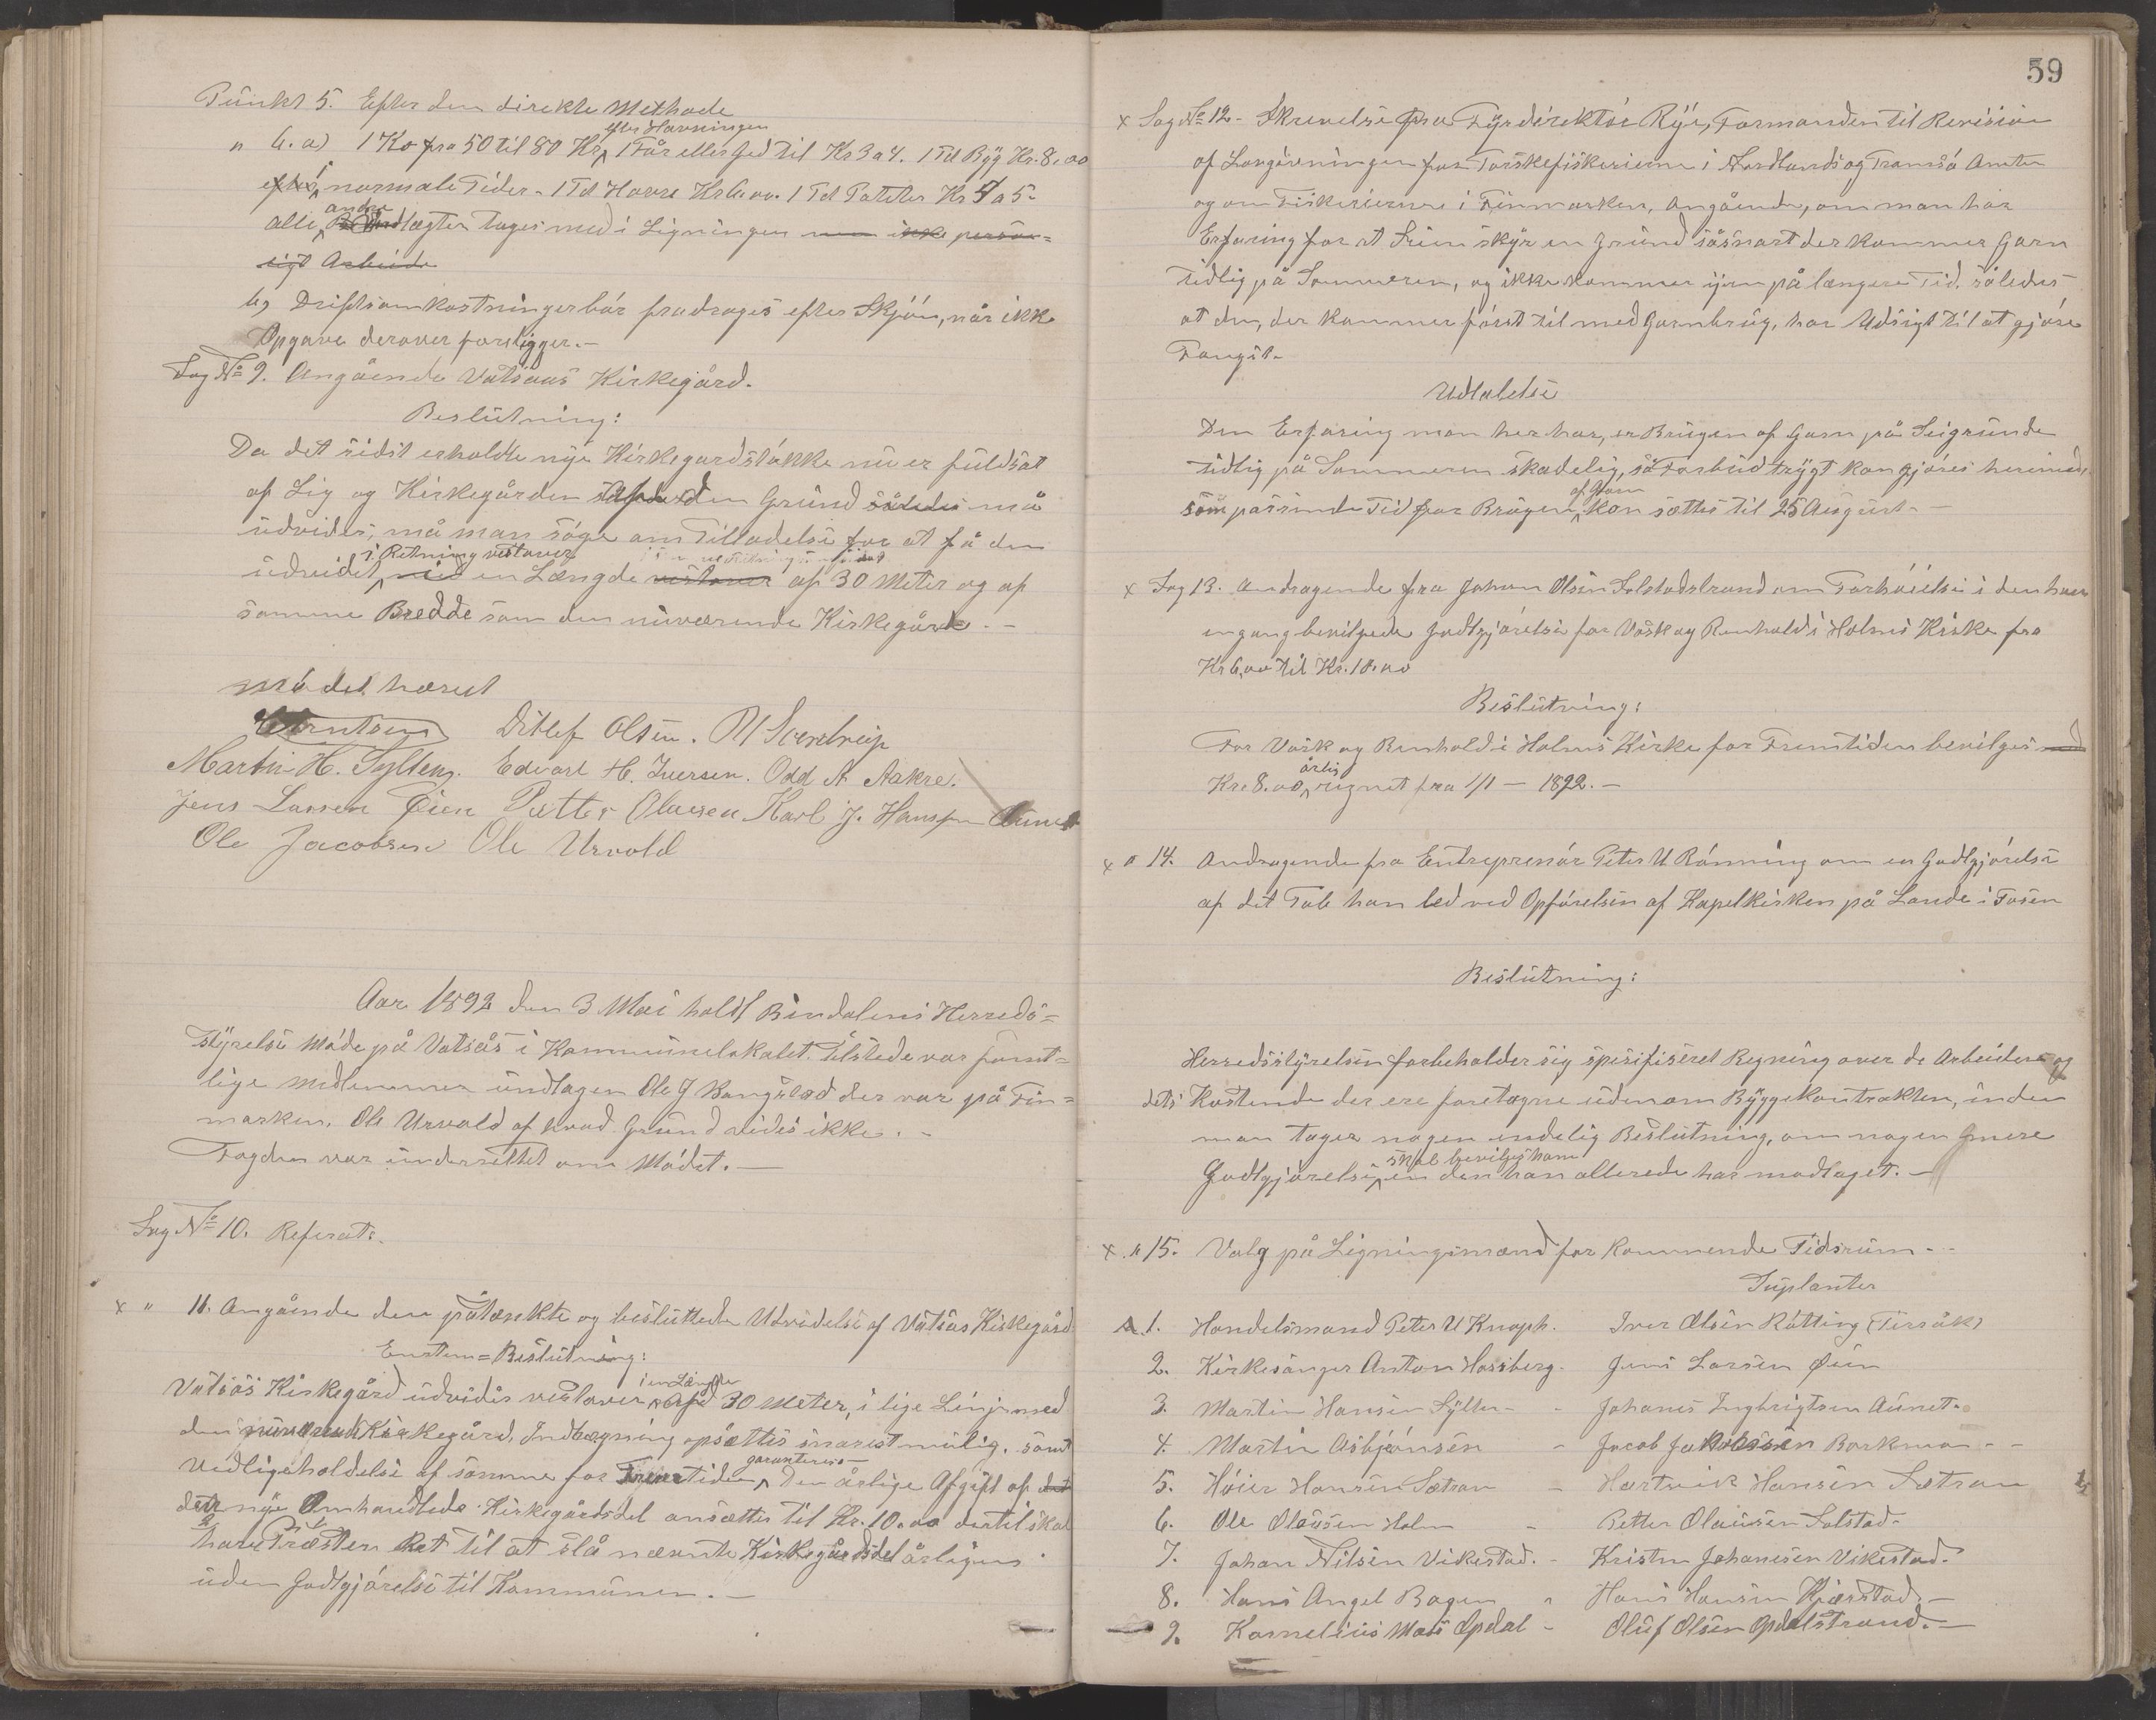 Punkt 5. Efter den direkte Methode
" 6. a) 1 Ko fra 50 til 80 Kr, efter Havningen 1 Får eller Ged til Kr 3 a 4. 1 Td Byg Kr. 8,00
i normale Tider - 1 Td Havre Kr 6,00. 1 Td Poteter Kr 4 a 5-
alle andre Indtægter tages med i Ligningen men ikke person=
ligt Arbeide
b) Driftsomkostninger bør fradrages efter Skjøn, når ikke
Opgave derover foreligger.-
Sag No 9. Angående Vatsaas Kirkegård.
Beslutning:
Da det sidst erholdte nye Kirkegardstøkke nu er fuldsat
af Lig og Kirkegården af den Grund således må
udvides, må man søge om Tilladelse for at få den
udvidet i Retning vestover med en Længde vestover af 30 Meter og af
samme Bredde som den nuværende Kirkegård.-
Mødet hævet
Ditlef Olsen.
Martin H. Sylten. Edvart H. Iversen. Odd A Aakre.
Jens Larsen Øien Petter Olausen Karl J. Hansen Aunet
Ole Jacobsen Ole Urvold
Aar 1892 den 3 Mai holdt Bindalens Herreds=
styrelse Møde på Vatsås i Kommunelokalet. Tilstede var samt=
lige Medlemmer undtagen Ole J Kangslad der var på Fin=
marken. Ole Urvold af hvad Grund vides ikke.-
Fogden var underrettet om Mødet.-
Sag No 10. Referat.
x " 11. Angående den påtænkte og besluttede Udvidelse af Vatsås Kirkegård
Enstem= Beslutning:
Vatsås Kirkegård udvides vestover i en Længde af 30 Meter, i lige Linje med
den nuværende Kirkegård, Indhægning opsættes snarest mulig, samt
Vedligeholdelse af samme for Fremtiden garanteres - Den årlige Afgift af det
den nye omhandlede Kirkegårdsdel ansættes til Kr. 10.00 dertil skal
have Præsten Ret til at slå nævnte Kirkegårdsdel årligen
uden Godtgjørelse til Kommunen.-
59
x Sag No 12- Skrivelse fra Fyrdirektør Rye, Formanden til Revision
af Lovgivningen for Torskefiskerierne i Nordlands og Tromsø Amter
og om Fiskerierne i Finmarken, Angående, om man har
Erfaring for at Seien skyr en Grund såsnart der kommer Garn
tidlig på Sommeren, og ikke kommer igen på længere Tid, således
at den, der kommer først til med Garnbrug, har Udsigt til at gjøre
Fangst-
Udtalelse
Den Erfaring man her har, er Brugen af Garn på Seigrunde
tidlig på Sommeren skadelig, så Forbud trygt kan gjøres herimod,
som passende Tid for Brugen af Garn kan sættes til 25 August.-
x Sag 13. Andragende fra Johan Olsen Solstadstrand om Forhøielse i den hver
engang bevilgede Godtgjørelse for Vask og Renhold i Holms Kirke fra
Kr 6,00 til Kr. 18.00
Beslutning:
For Vask og Renhold i Holms Kirke for Fremtiden bevilges med
Kr 8.00 årlig regnet fra 1/1 - 1892.-
x " 14. Andragende fra Entreprenør Peter U Rønning om en Godtgjørelse
af det Tab han led ved Opførelsen af Kapelkirken på Lande i Tosen
Beslutning:
Herredsstyrelsen forbeholder sig spesifiseret Regning over de Arbeider og
dets Kostende der ere foretagne udenom Byggekontrakten, inden
man tager nogen endelig Beslutning, om nogen mere
Godtgjørelse skal bevilges ham en den han allerede har modtaget.-
x " 15. Valg på Ligningsmænd for kommende Tidsrum.-
Suplanter
A. 1. Handelsmand Peter U Knoph. Iver Olsen Røtting (Terråk)
2. Kirkesanger Anton Hassberg - Jens Larsen Øien
3. Martin Hansen Sylten - Johanes Ingbrigtsen Aunet.
4. Martin Asbjønsen - Jacob Jakobssen Barkmo -
5. Høier Hansen Sætran - Hartvik Hansen Sætran
6. Ole Olausen Holm - Petter Olausen Solstad-
7. Johan Nilsen Vikestad. - Kristen Johanesen Vikestad.
8. Hans Angel Bogen " Hans Hansen Kjærstad -
9. Kornelius Moe Opdal - Oluf Olsen Opdalstrand.-